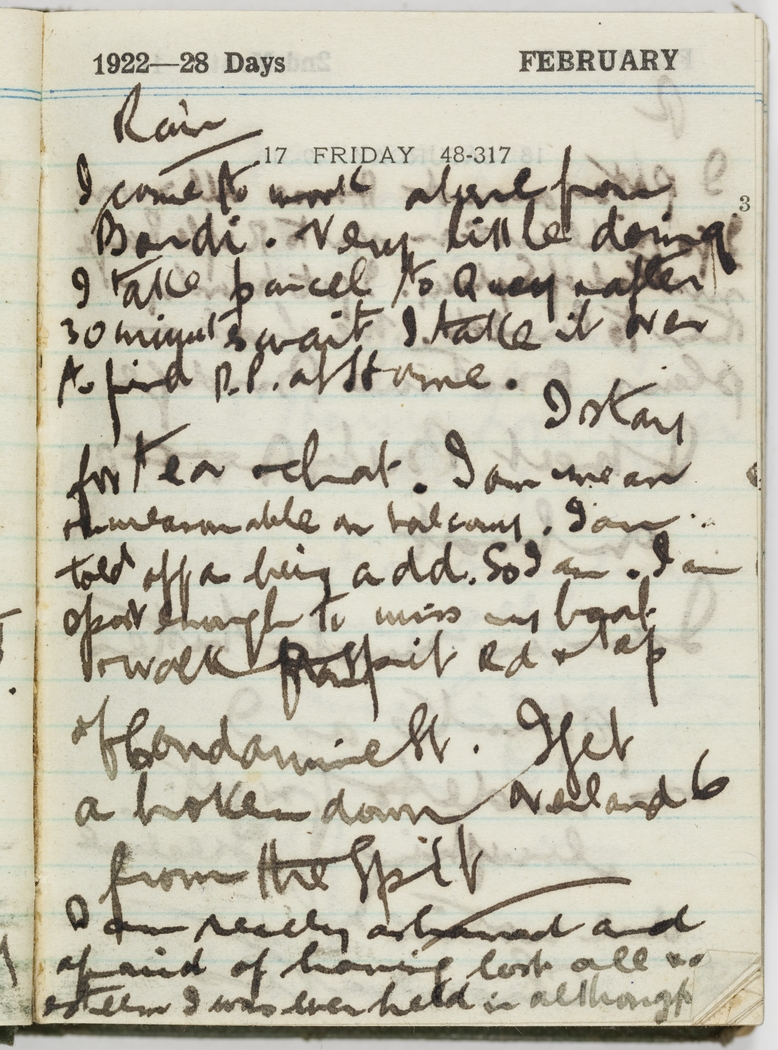 1922—28 Days FEBRUARY
Rain
17 FRIDAY 48-317
I come to work alone from
Bondi. Very little doing
I take parcel to Quay & after
30 minutes wait I take it over
to find P.P. at Home.
I stay
for tea & chat. I am mean
& unreasonable on balcony. I am
told off as being a dd. So I am. I am
sport enough to miss my boat
& walk Spit Rd & top
of Condamine St. I get
a broken down Overland 6
from the Spit
I am really ashamed and
afraid of having lost all
esteem I was ever held in although
3